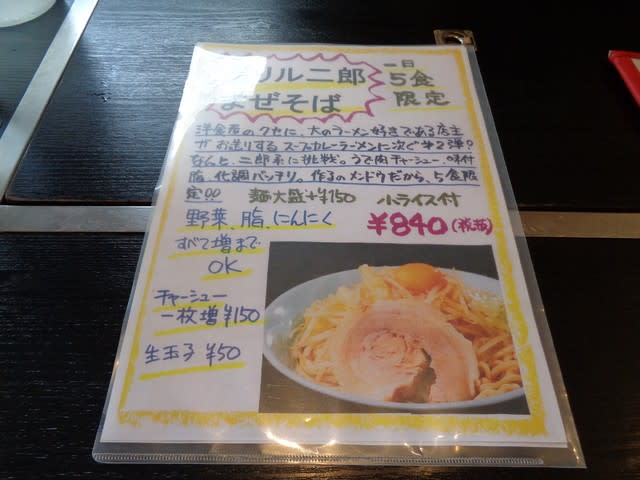 リル二郎
まぜそば
一日
5食
限定
洋食屋のクセに、大のラーメン好きである店主
がお送りするスープカレーラーメンに次ぐ第2弾!
なんと、二郎系に挑戦。うで肉チャーシュー、味付
脂、化調バッチリ。作るのメンドウだから、5食限
定!! 麺大盛+¥150 小ライス付
野菜、脂、にんにく ¥840(税込)
すべて増まで
OK
チャーシュー
一枚増¥150
生玉子 ¥50